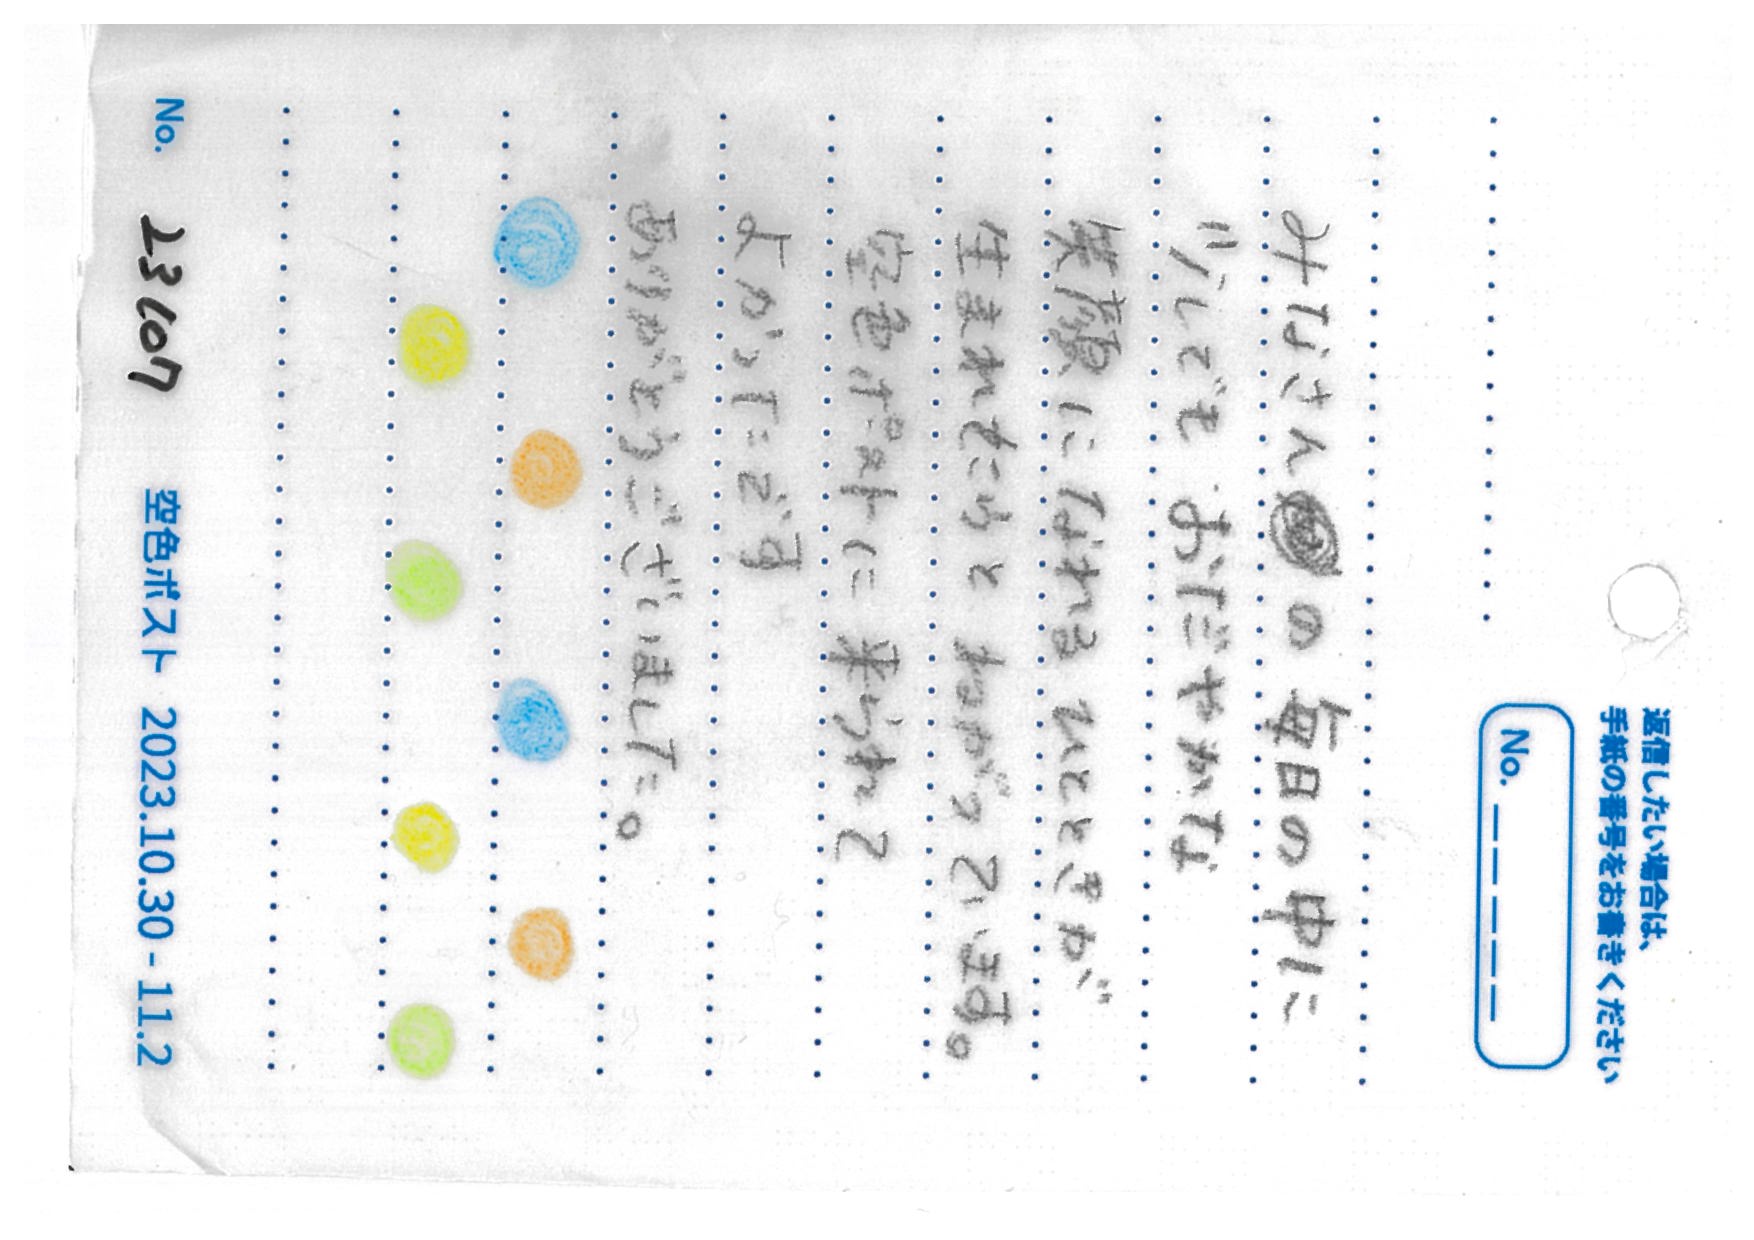 返信したい場合は、
手紙の番号をお書きください
No. _ _ _ _ _
みなさんの毎日の中に
少しでも おだやかな
笑顔になれる ひとときが
生まれたらと ねがっています。
空色ポストに 来られて
よかったです
ありがとうございました。
No. 23107 空色ポスト 2023.10.30 - 11.2